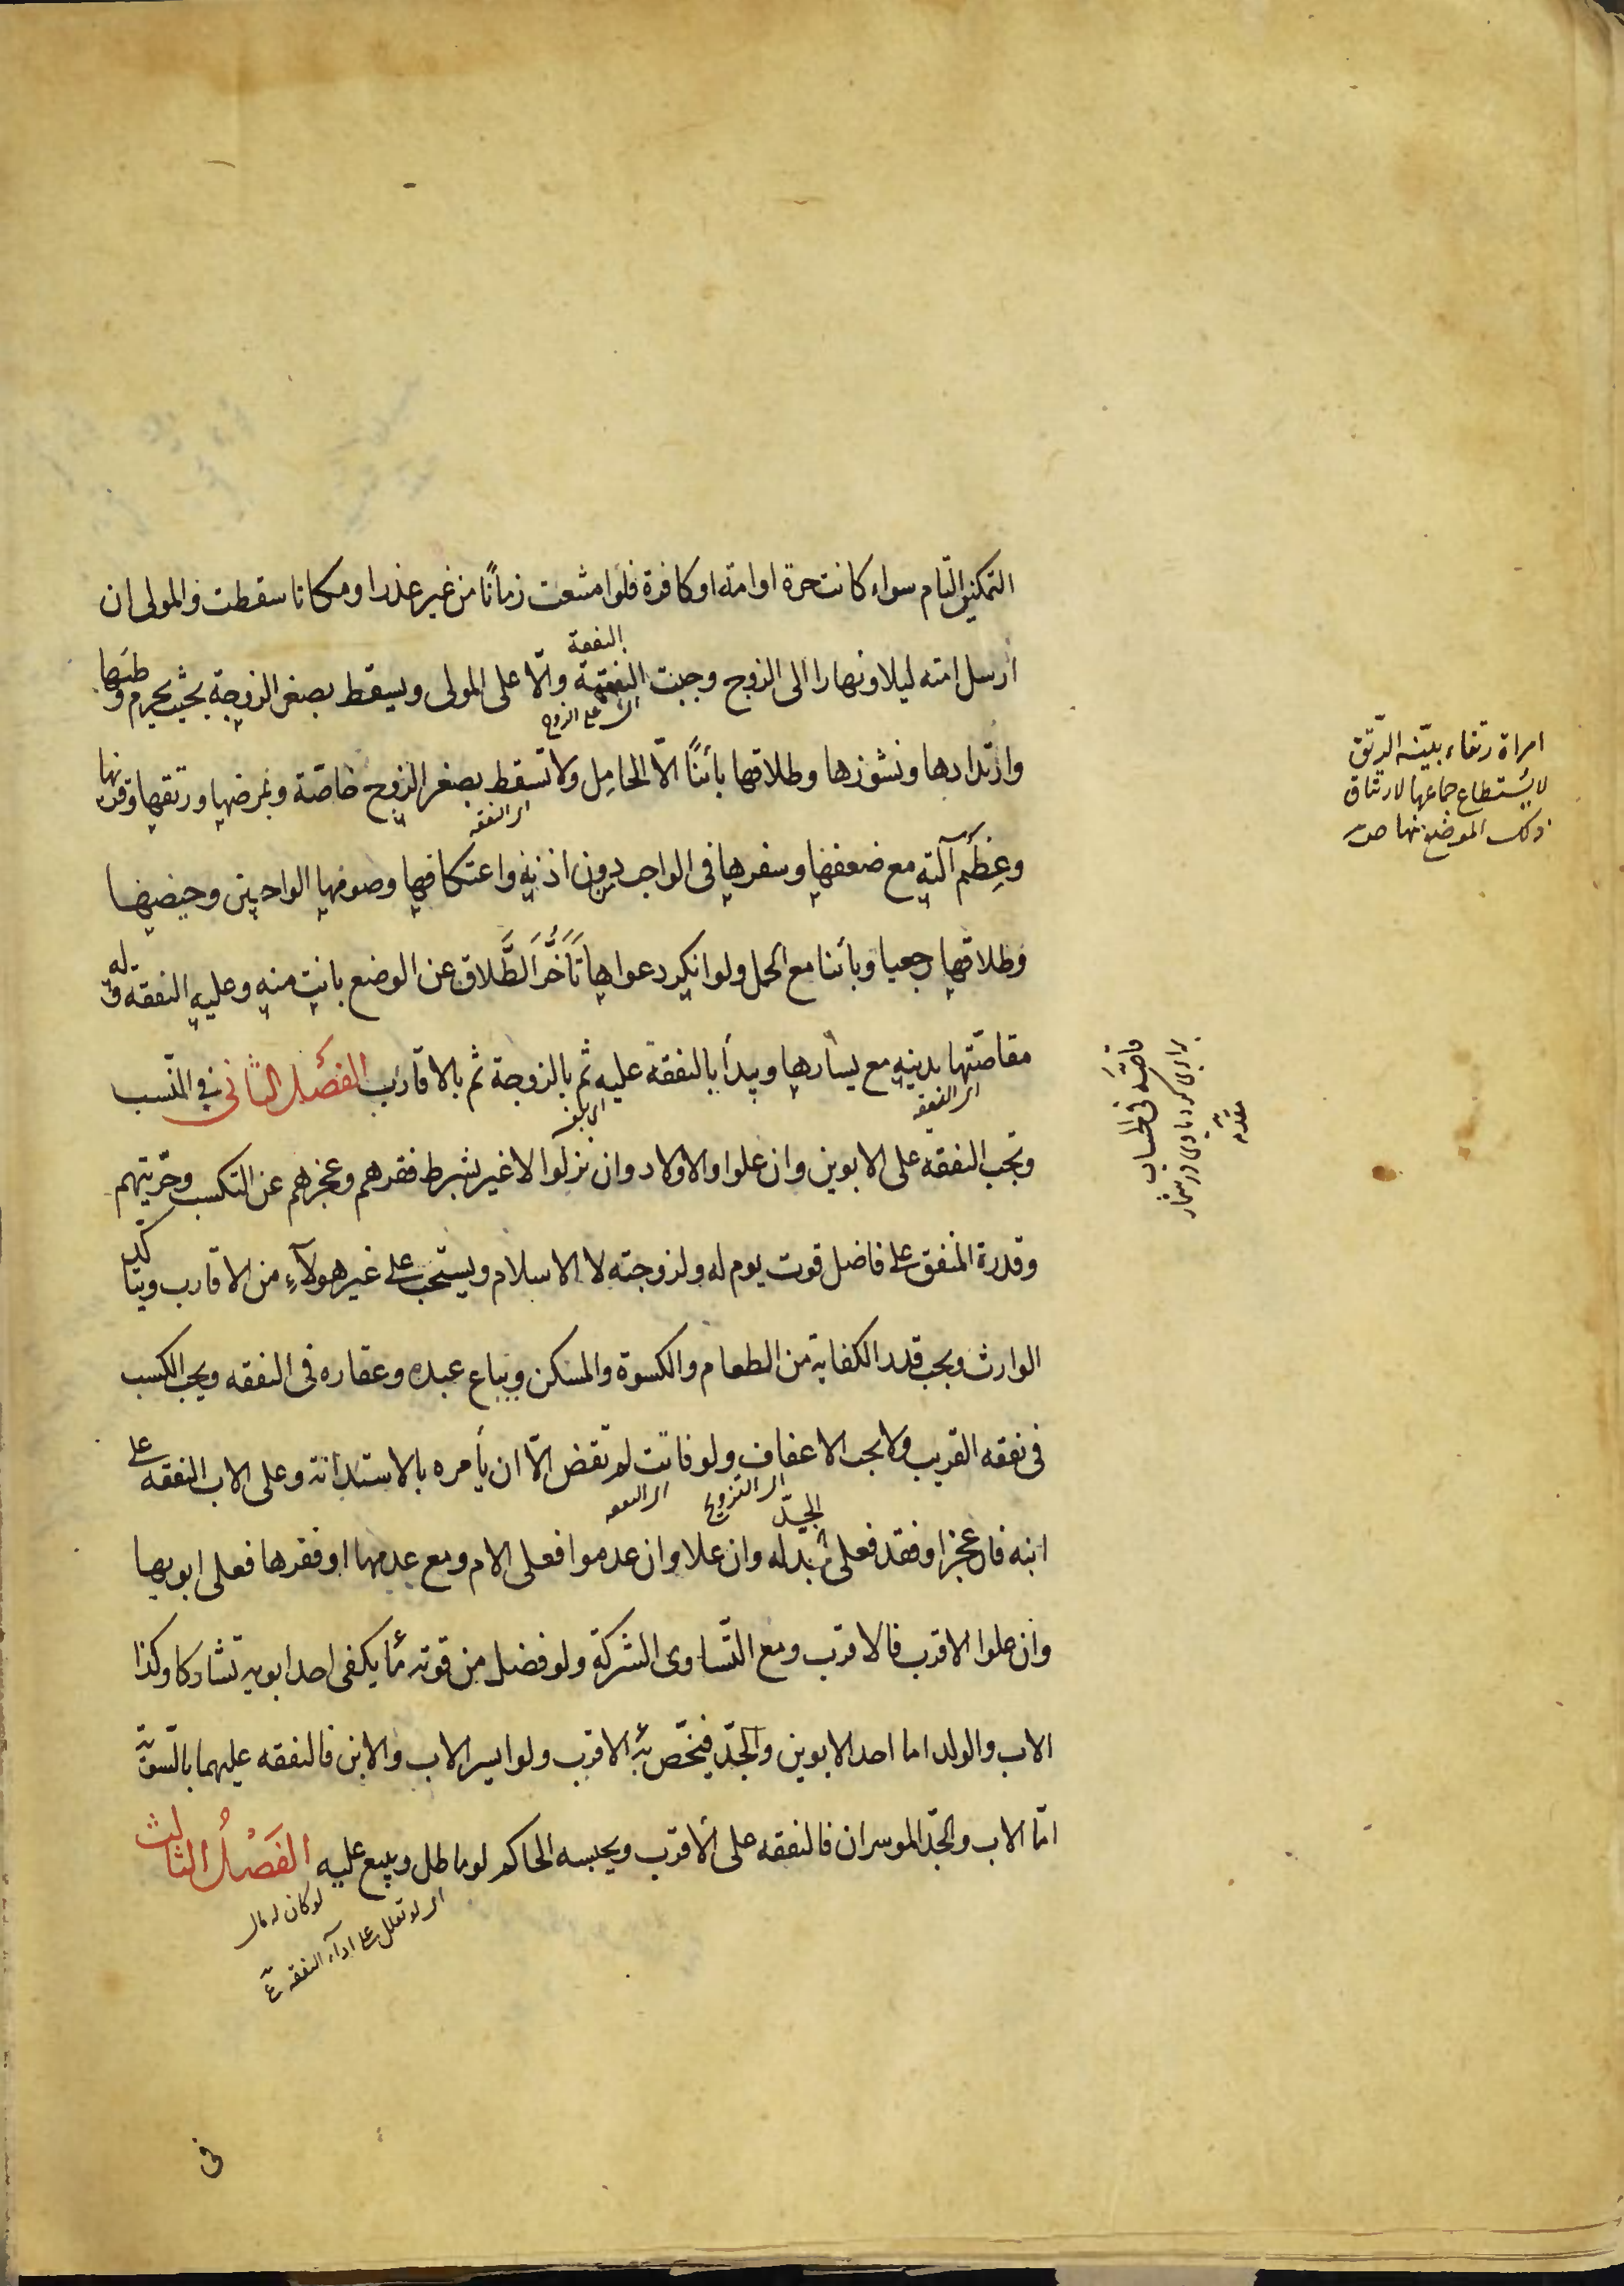 التمكين التام سواء كانت حرة او امة او كافرة فلو امتنعت زمانًا من غير عذر او مكانا سقطت والمولى ان
ارسل امته ليلا ونهارا الى الزوج وجبت النفقة والّا على المولى ويسقط بصغر الزوجة بحيث يحرم وطئها
النفقة
اى على الزوج
وارتدادها ونشوزها وطلاقها بائنًا الّا الحامل ولا تسقط بصغر الزوج خاصّة وبمرضها ورتقها وقرنها
اى النفقه
وعِظَم آلته مع ضعفها وسفرها فى الواجب بدون اذنه واعتكافها وصومها الواجبين وحيضها
وطلاقها رجعيا وبائنا مع الحمل ولو انكر دعواها تَأَخُّرَ الطَّلاق عن الوضع بانت منه وعليه النفقه وله
مقاصّتها بدينه مع يسارها ويبدأ بالنفقة عليه ثم بالزوجة ثم بالاقارب الفصل الثانى فى النّسب
اى النفقه
وتجب النفقه على الابوين وان علوا والاولاد وان نزلوا لا غير بشرط فقرهم وعجزهم عن التكسب وحرّيتهم
وقدرة المنفق على فاضل قوت يوم له ولزوجته لا الاسلام ويستحب على غير هولآء من الاقارب ويتاكّد
الوارث ويجب قدر الكفاية من الطعام والكسوة والمسكن ويباع عبده وعقاره فى النفقه ويجب الكسب
فى نفقه القريب ولا يجب الاعفاف ولو فاتت لم تقض الّا ان يأمره بالاستدانة وعلى الاب النفقه على
اى التزويج
اى النفقه
ابنه فان عجز او فقد فعلى الجدّ له وان علا وان عدموا فعلى الام ومع عدمها او فقرها فعلى ابويها
وان علوا الاقرب فالاقرب ومع التّساوى الشركة ولو فضل من قوته ما يكفى احد ابويه تشاركا وكذا
الاب والولد اما احد الابوين والجدّ فيختّص به الاقرب ولو ايسر الاب والابن فالنفقه عليهما بالسّويّة
امّا الاب والجدّ الموسران فالنفقه على الاقرب ويحبسه الحاكم لو ماطل ويبيع عليه الفَصْلُ الثالث
لو كان له مال
اى لو تعلل على ادآء النفقه ع
فى
امراة رتقاء بيّنة الرّتق
لا يُستطاع جماعها لارتتاق
ذلك الموضع منها ص
قاصّه فى الحساب
برابرى كرد با وى در شمار
مقدمه